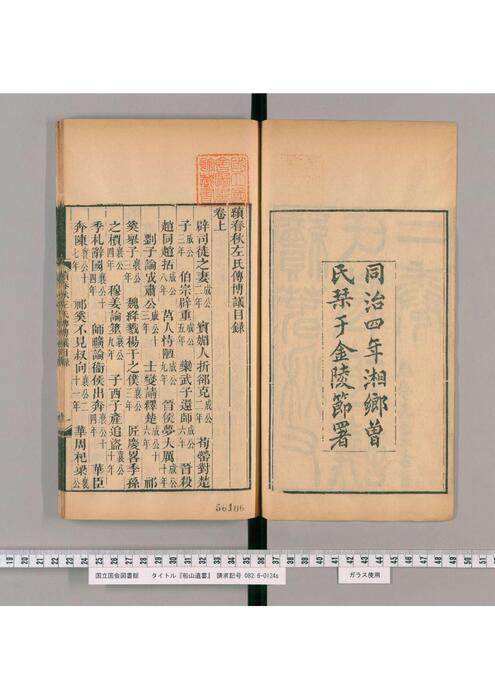 同治四年湘鄉曾
氏栞于金陵節署
續春秋左氏傳博議目錄
卷上
辟司徒之妻成公二年 賓媚人折郤克成公二年 荀罃對楚
子成公三年 伯宗辟重成公五年 欒武子還師成公六年 晉殺
趙同趙括成公八年 莒人恃陋成公九年 晉侯夢大厲成公十年
劉子論成肅公成公十三年 士燮請釋楚成公十六年 祁
奚舉子襄公三年 魏絳戮楊干之僕襄公三年 匠慶畧季孫
之檟襄公四年 穆姜論筮襄公九年 子西子產追盜襄公十年
季札辭國襄公十四年 師曠論衞侯出奔襄公十四年 華臣
奔陳襄公十七年 祁奚不見叔向襄公二十一年 華周杞梁襄公
續春秋左氏傳博議目錄
56106
国立国会図書館 タイトル『船山遺書』 請求記号 082.6-O124s
ガラス使用